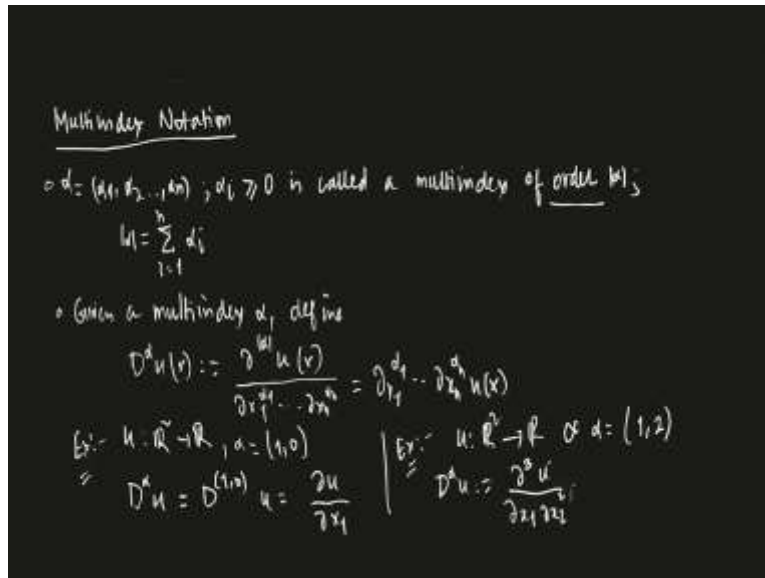 Multiindex Notation
∘ α = (α₁, α₂, ..., αₙ) ; αᵢ ⩾ 0 is called a multiindex of order |α|;
|α| = ∑ᵢ₌₁ⁿ αᵢ
∘ Given a multiindex α, define
D^α u(x) := ∂^|α| u(x) / ∂x₁^α₁ ... ∂xₙ^αₙ = ∂_x₁^α₁ ... ∂_xₙ^αₙ u(x)
Ex:- u: ℝ² → ℝ, α = (1,0)
D^α u = D^(1,0) u = ∂u / ∂x₁
Ex:- u: ℝ² → ℝ & α = (1,2)
D^α u := ∂³u / ∂x₁ ∂x₂²